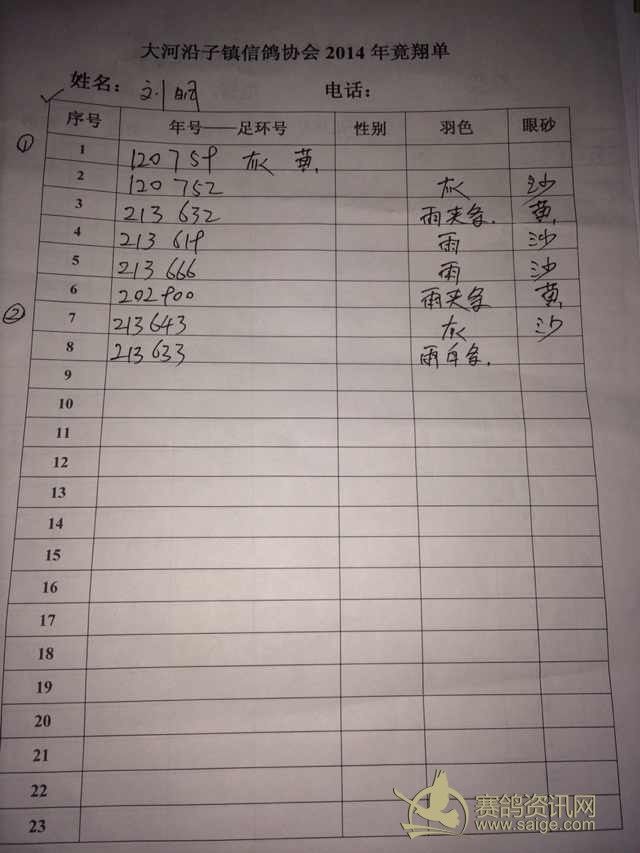 大河沿子镇信鸽协会 2014 年竟翔单
姓名： 刘 电话：
序号 年号——足环号 性别 羽色 眼砂
① 1 120 759 灰 黄
2 120 752 灰 沙
3 213 632 雨夹条 黄
4 213 619 雨 沙
5 213 666 雨 沙
6 202900 雨夹条 黄
② 7 213643 灰 沙
8 213 633 雨白条
9
10
11
12
13
14
15
16
17
18
19
20
21
22
23
赛鸽资讯网
www.saige.com